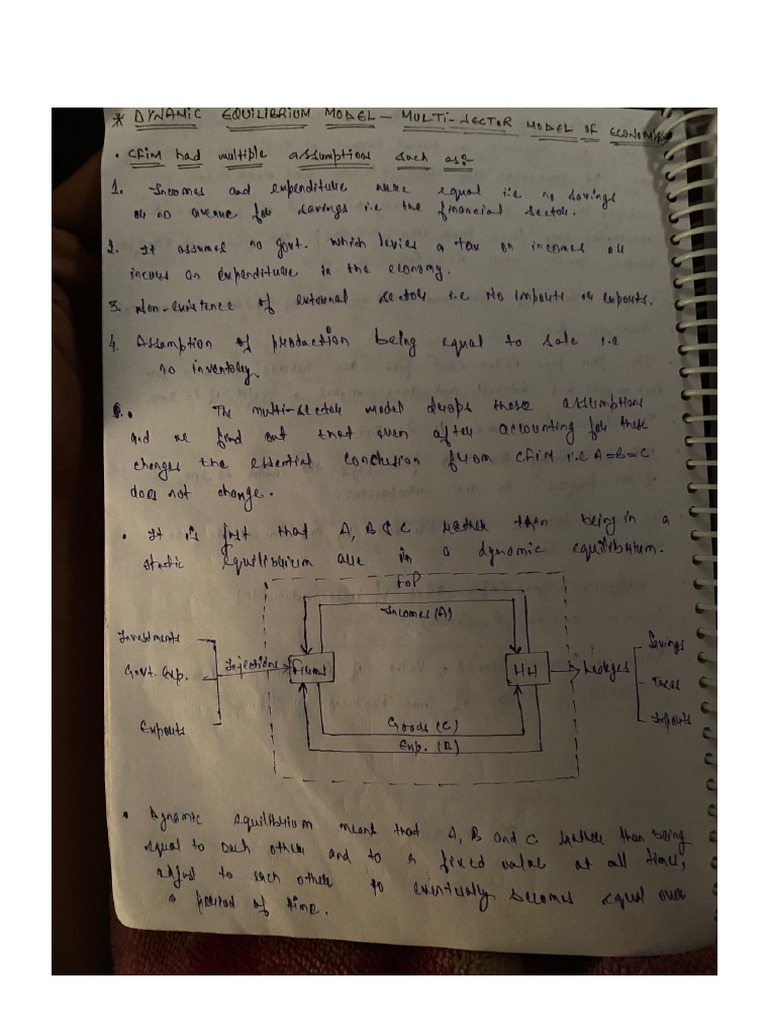 * DYNAMIC EQUILIBRIUM MODEL - MULTI-SECTOR MODEL OF ECONOMY
• CFIM had multiple assumptions such as:
1. Incomes and expenditure were equal i.e no savings
or no avenue for savings i.e the financial sector.
2. It assumes no govt. which levies a tax on incomes or
incurs an expenditure in the economy.
3. Non-existence of external sector i.e No imports or exports.
4. Assumption of production being equal to sale i.e
no inventory.
• The multi-sector model drops these assumptions
and we find out that even after accounting for these
changes the essential conclusion from CFIM i.e A=B=C
does not change.
• It is just that A, B & C rather than being in a
static equilibrium are in a dynamic equilibrium.
FOP
Incomes (A)
Investments
Govt. Exp.
Exports
Injections
Firms
HH
Leakges
Savings
Taxes
Imports
Goods (C)
Exp. (B)
• Dynamic equilibrium means that A, B and C rather than being
equal to each other and to a fixed value at all times,
adjust to each other to eventually becomes equal over
a period of time.